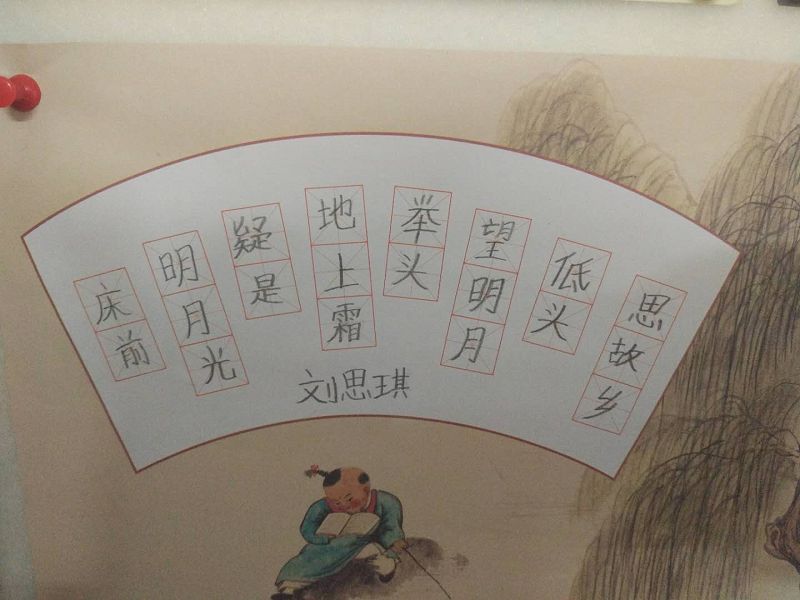 床前
明月光
疑是
地上霜
举头
望明月
低头
思故乡
刘思琪